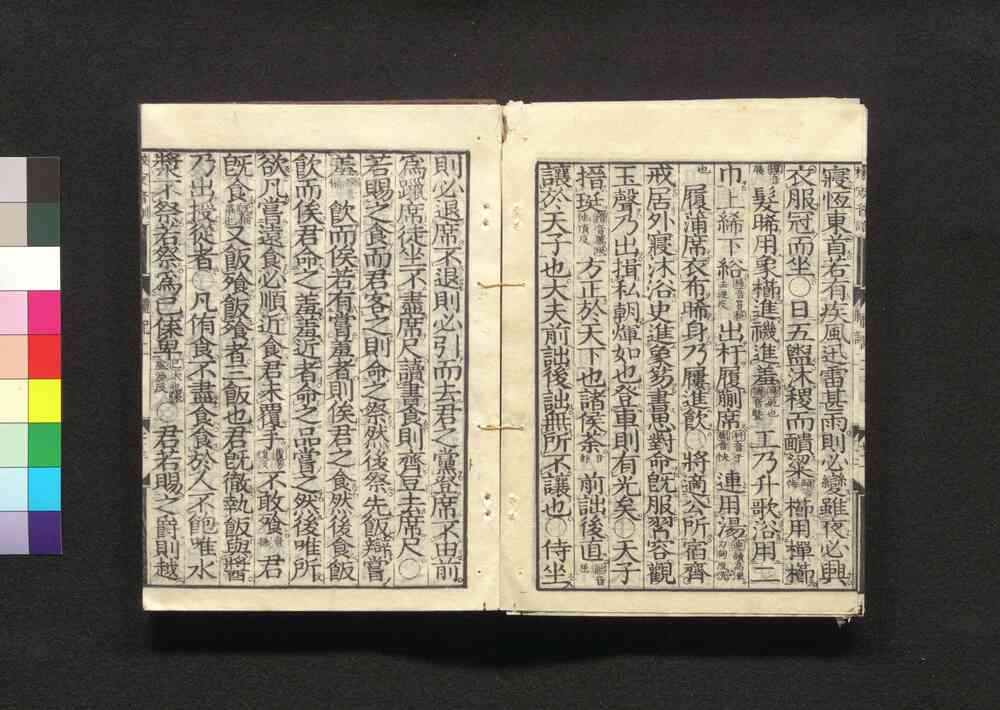 寢恆東首若有疾風迅雷甚雨則必變雖夜必興
衣服冠而坐〇日五盥沐稷而靧粱櫛用樿櫛
髮晞用象櫛進禨進羞工乃升歌浴用二
巾上絺下綌出杅履蒯席連用湯
履蒲席衣布晞身乃屨進飲〇將適公所宿齊
戒居外寢沐浴史進象笏書思對命既服習容觀
玉聲乃出揖私朝煇如也登車則有光矣〇天子
搢珽方正於天下也諸侯荼前詘後直
讓於天子也大夫前詘後詘無所不讓也〇侍坐
則必退席不退則必引而去君之黨登席不由前
為躐席徒坐不盡席尺讀書食則齊豆去席尺〇
若賜之食而君客之則命之祭然後祭先飯辯嘗
羞飲而俟若有嘗羞者則俟君之食然後食飯
飲而俟君命之羞羞近者命之品嘗之然後唯所
欲凡嘗遠食必順近食君未覆手不敢飧君
既食又飯飧飯飧者三飯也君既徹執飯與醬
乃出授從者〇凡侑食不盡食食於人不飽唯水
漿不祭若祭為已傒卑〇君若賜之爵則越